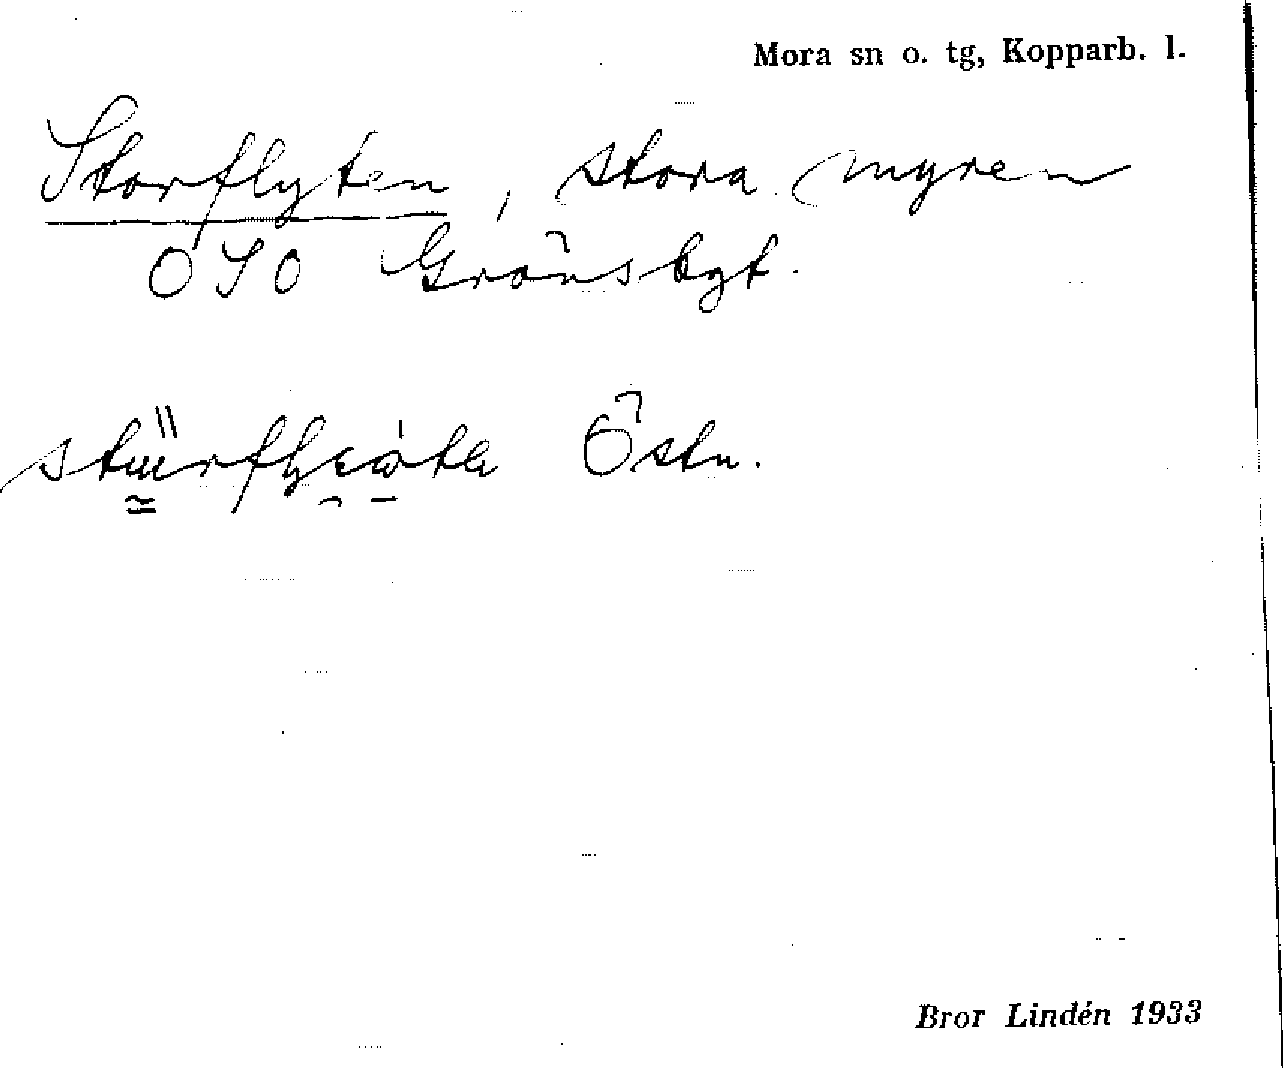 Mora sn o. tg, Kopparb. l.
Storflyten, stora myren
OSO Grönsbgt.
Östn.
Bror Lindén 1933